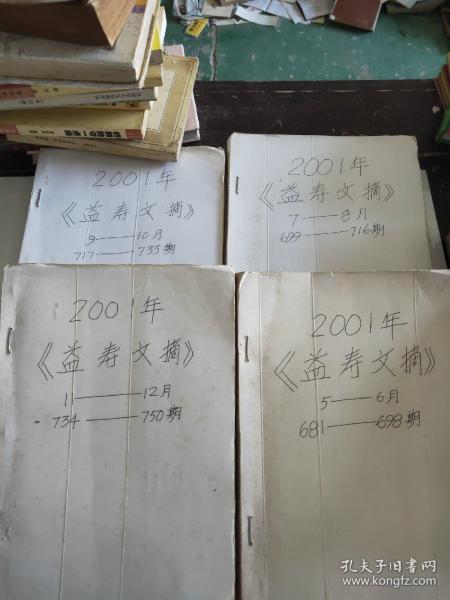 2001年
《益寿文摘》
9——10月
717——733期
2001年
《益寿文摘》
7——8月
699——716期
2001年
《益寿文摘》
11——12月
734——750期
2001年
《益寿文摘》
5——6月
681——698期
孔夫子旧书网
www.kongfz.com